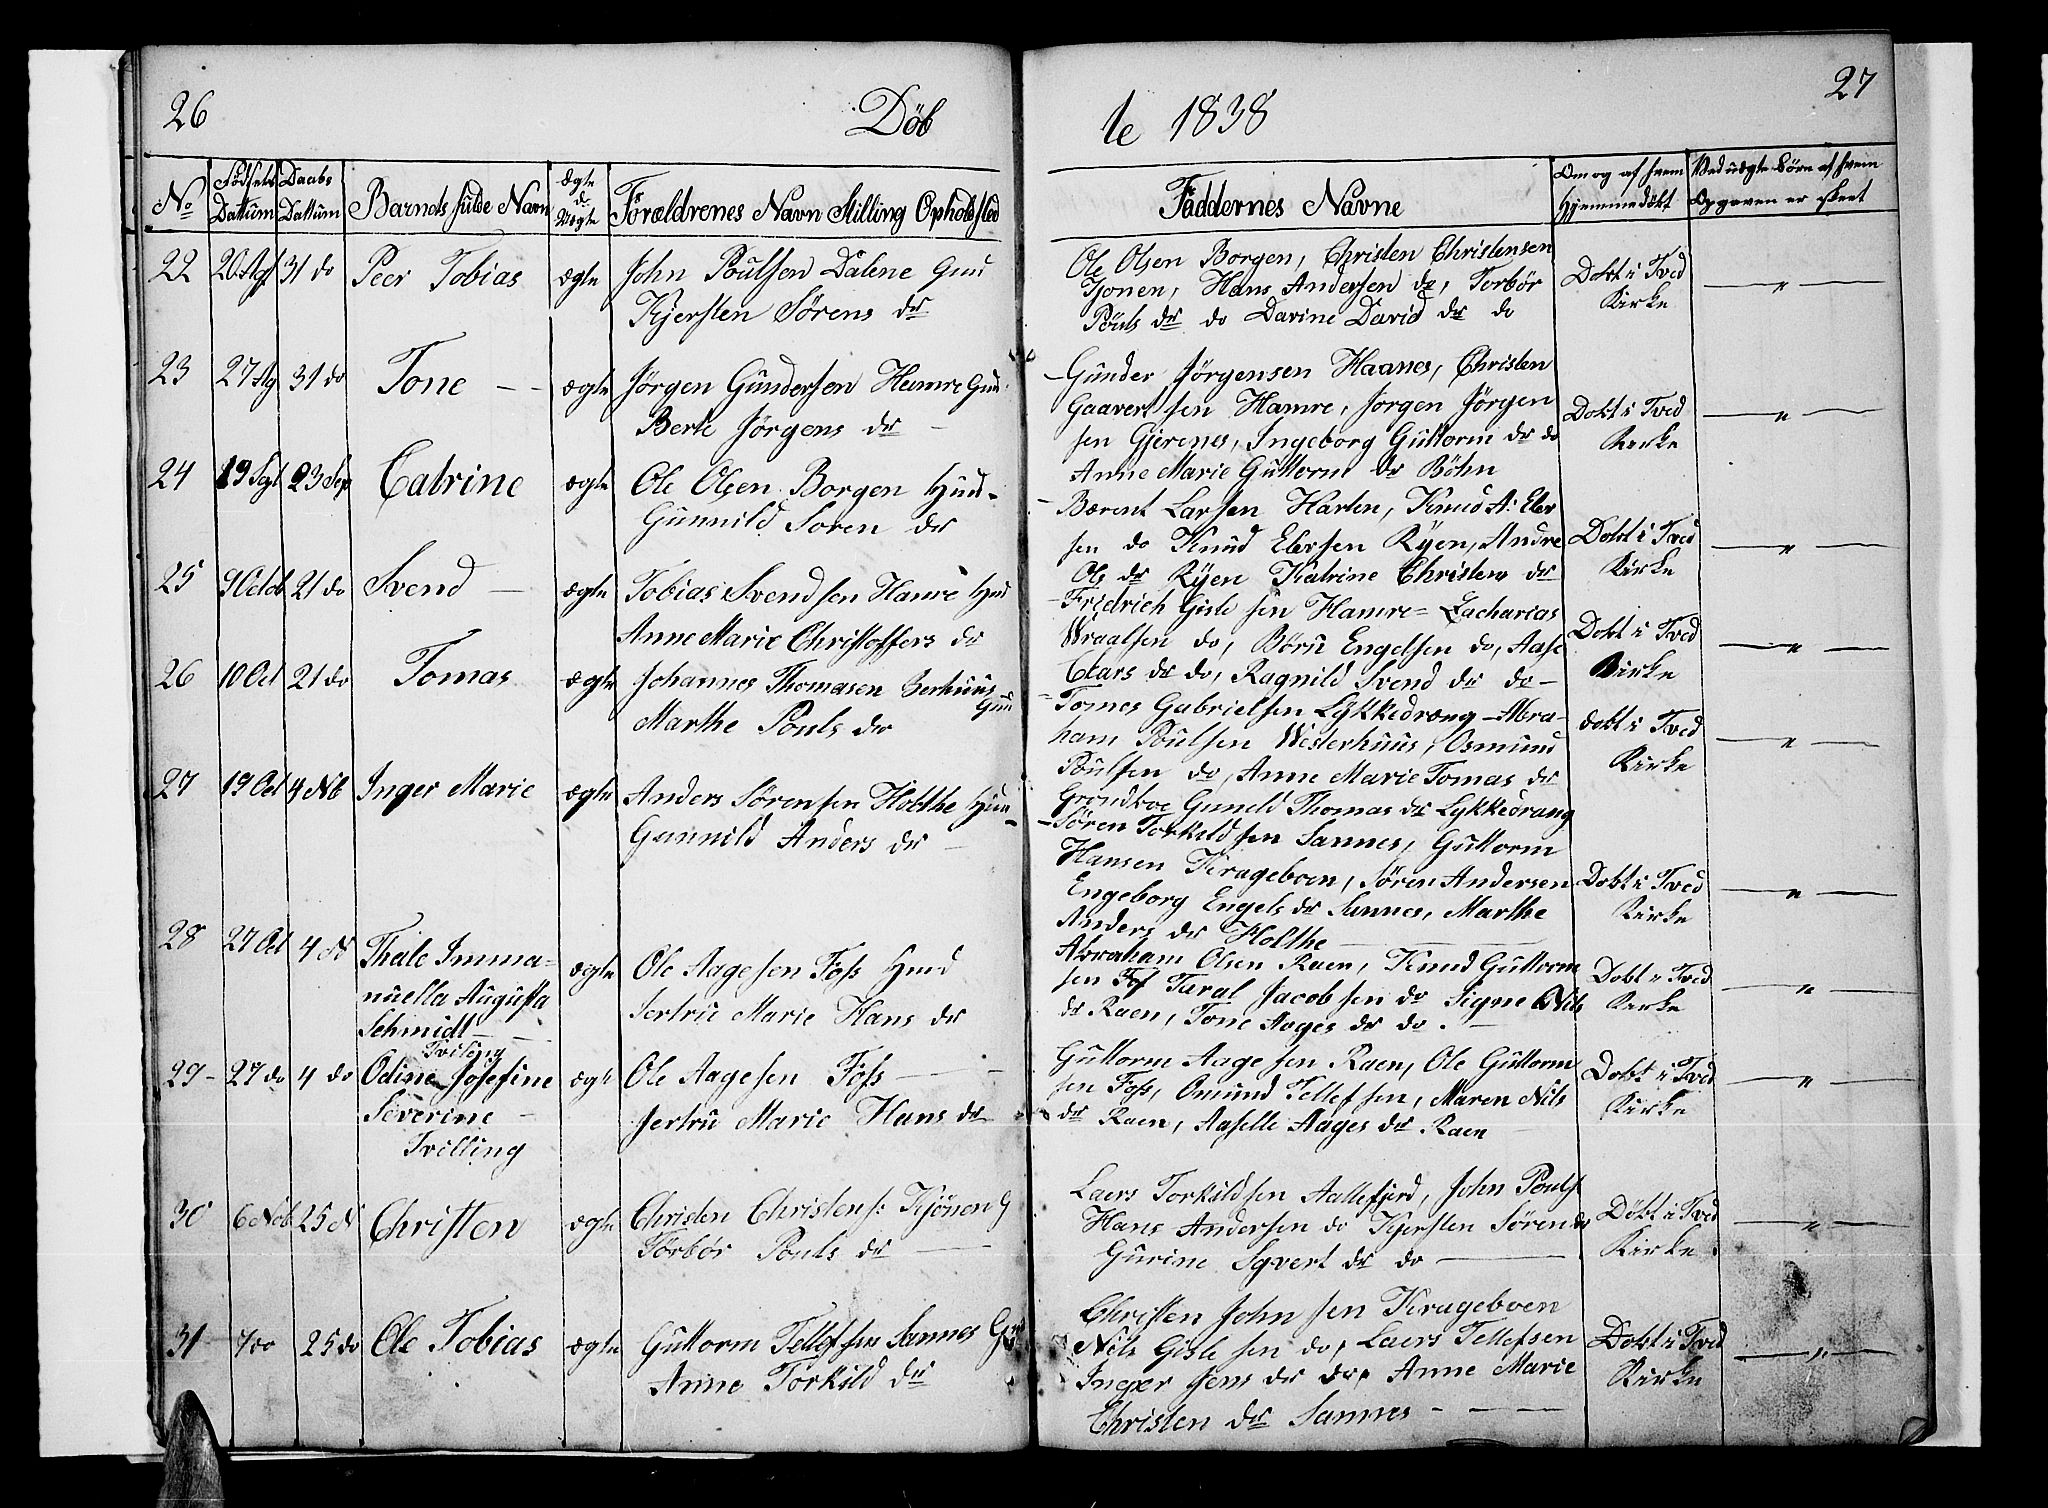 26
Döb
te 1838
27
No
Födsels Dattum
Daabs Dattum
Barnets fulde Navn
Ægte
Uægte
Forældrenes Navn Stilling Opholdsted
Faddernes Navne
Om og af hvem Hjemmedöbt
Ved uægte Börn af hvem Opgaven er skeet
22 20 Ag 31 do Peer Tobias ægte John Poulsen Dalene
Kjersten Sörens dr
Ole Olsen Borgen, Christen Christensen
Tjonen, Hans Andersen do, Torbör
Pouls dr do Davine David dr do
Dobt i Tved
Kirke
23 27 Ag 31 do Tone ægte Jörgen Gundersen Hamre
Berte Jörgens dr
Gunder Jörgensen Haanes, Christen
Gaavert sen Hamre, Jorgen Jörgen
sen Gjerenes, Ingeborg Guttorm dr do
Anne Marie Guttorm do Böhn
Dobt i Tved
Kirke
24 19 Sept 23 Sep Catrine ægte Ole Olsen Borgen
Gunnild Soren dr
Bærent Larsen Harten, Knud A: Eber
sen do Knud Ebersen Ryen, Andre
Ols dr Ryen Katrine Christens dr
Dobt i Tved
Kirke
25 9 Octob 21 do Svend ægte Tobias Svendsen Hamre
Anne Marie Christoffers dr
Fridrich Gisle sen Hamre Zacharias
Wraalsen do, Börü Engelsen do, Aase
Clars dr do, Ragnild Svend dr do
Dobt i Tved
Kirke
26 10 Oct 21 do Tomas ægte Johannes Thomasen
Marthe Pouls dr
Tomes Gabrielsen Lykkedræng Abra-
ham Poulsen Westerhuus, Osmund
Poulsen do, Anne Marie Tomas dr
Guneld Thomas dr Lykkedrang
dobt i Tved
Kirke
27 19 Oct 4 Nb Inger Marie ægte Anders Sörensen Holthe
Gunnild Anders dr
Sören Torkildsen Sannes, Guttorm
Hansen Krageboen, Sören Andersen
Engeborg Engels dr Sannes, Marthe
Anders dr Holthe
Dobt i Tved
Kirke
28 27 Oct 4 N Thale Imma-
nuella Augusta
Schmidt
Tviling
ægte Ole Aagesen Foss
Jertru Marie Hans dr
Abraham Olsen Raen, Knud Guttorm
sen Taral Jacobsen do Signe Nils
dr Raen, Tone Aages dr do
Dobt i Tved
Kirke
29 27 do 4 do Odine Josefine
Severine
Tvilling
ægte Ole Aagesen Foss
Jertru Marie Hans dr
Guttorm Aagesen Raen, Ole Guttorm
sen Foss, Omund Tellefsen, Maren Nils
dr Raen, Aaselle Aages dr Raen
Dobt i Tved
Kirke
30 6 Nob 25 N Christen ægte Christen Christens: Kjönen
Törbör Pouls dr
Laers Torkildsen Aallefjerd, John Pouls
Hans Andersen do Kjersten Sören dr
Gurine Sgvert dr do
Döbt i Tved
Kirke
31 7 do 25 do Ole Tobias ægte Guttorm Tellefsen Sannes
Anne Torkild dr
Christen John sen Krageboen
Nils Gisle sen do, Laers Tellefsen
Inger Jens dr do, Anne Marie
Christen dr Sannes
Dobt i Tved
Kirke